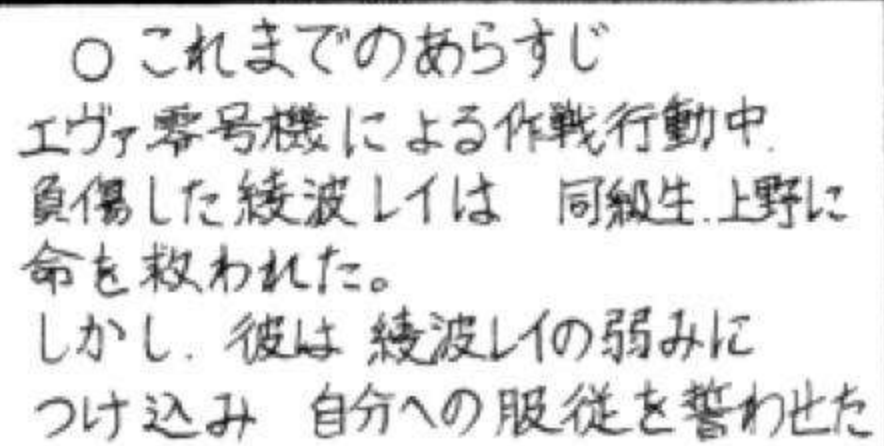 ○これまでのあらすじ
エヴァ零号機による作戦行動中、
負傷した綾波レイは 同級生、上野に
命を救われた。
しかし、彼は綾波レイの弱みに
つけ込み 自分への服従を誓わせた